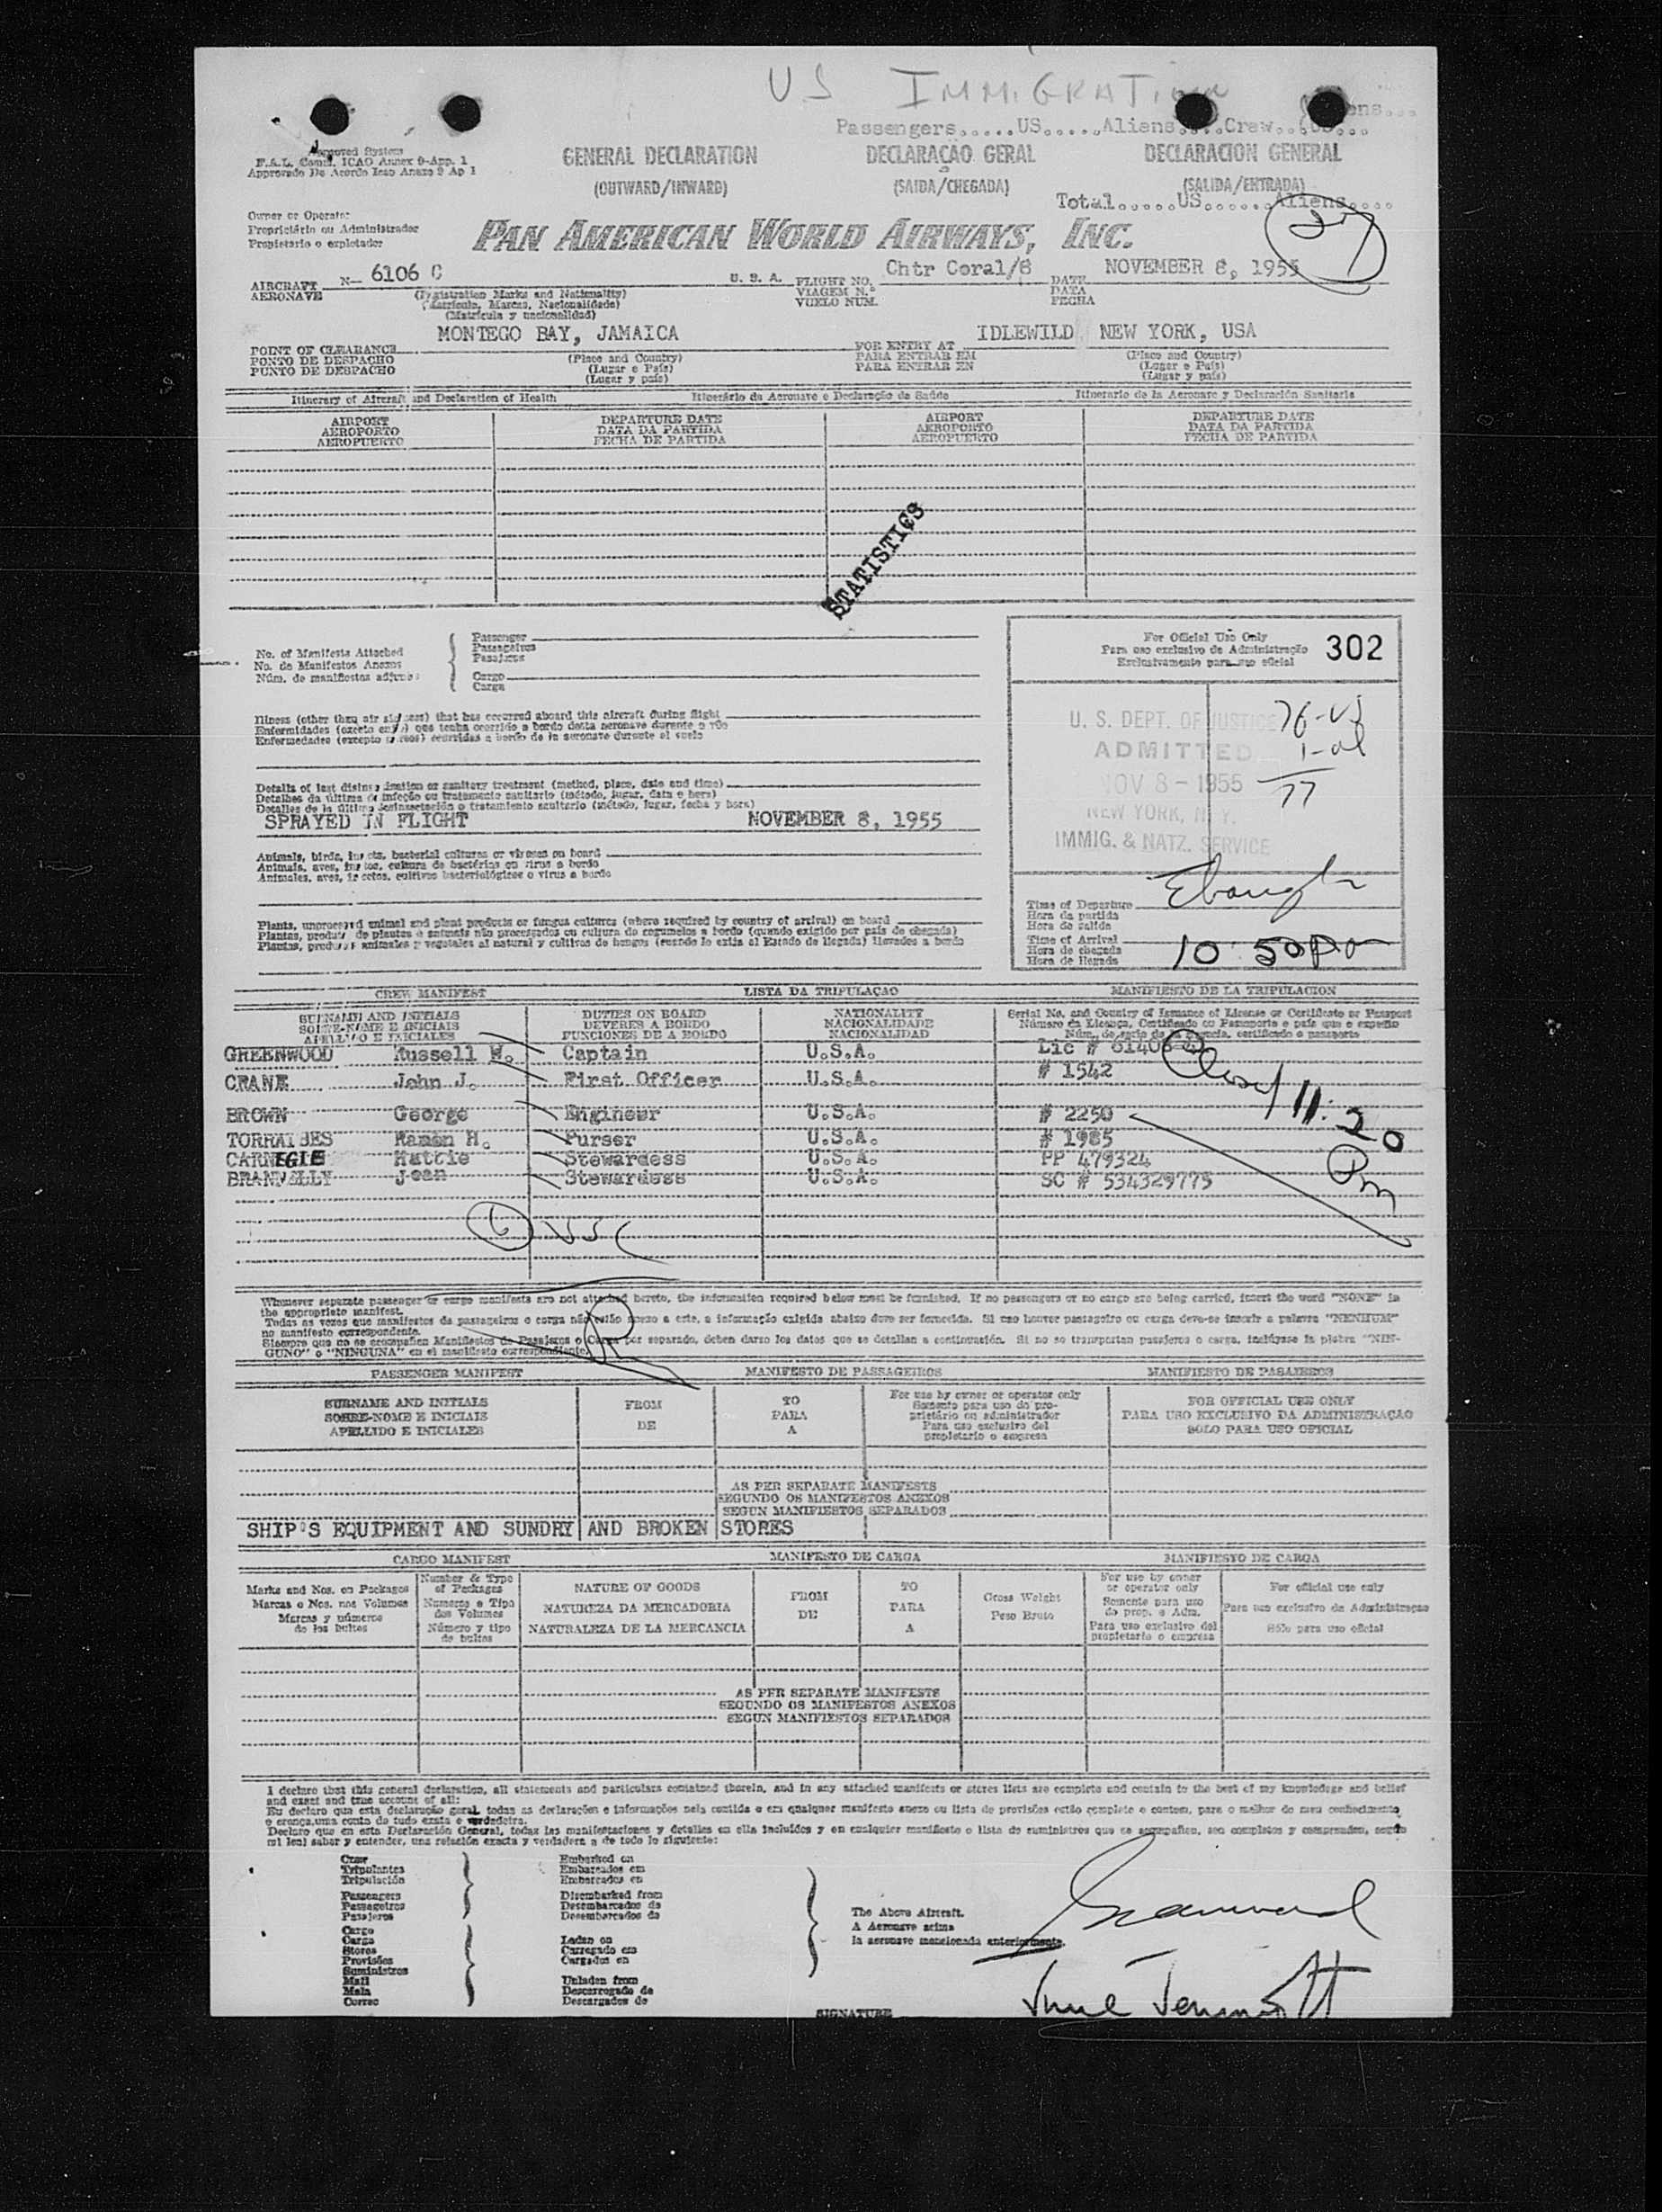 US IMMIGRATION
Passengers.....US.....Aliens....Crew..
Approved System
F.A.L. Comm. ICAO Annex 9-App. 1
Approvado De Acordo Icao Anexo 9 Ap 1
GENERAL DECLARATION DECLARAÇÃO GERAL DECLARACION GENERAL
(OUTWARD/INWARD) (SAIDA/CHEGADA) (SALIDA/ENTRADA)
Total.....US......Aliens....
Owner or Operator
Propriciário ou Administrador
Propietario o explotador
PAN AMERICAN WORLD AIRWAYS, INC.
AIRCRAFT N- 6106 C U. S. A. FLIGHT NO. Chtr Coral/8 DATE NOVEMBER 8, 1955
AERONAVE (Registration Marks and Nationality) VIAGEM N.º DATA
(Matricula, Marcas, Nacionalidade) VUELO NUM. FECHA
(Matrícula y nacionalidad)
POINT OF CLEARANCE MONTEGO BAY, JAMAICA FOR ENTRY AT IDLEWILD NEW YORK, USA
PONTO DE DESPACHO (Place and Country) PARA ENTRAR EM (Place and Country)
PUNTO DE DESPACHO (Lugar e País) PARA ENTRAR EN (Lugar e País)
(Lugar y país) (Lugar y país)
Itinerary of Aircraft and Declaration of Health Itinerário da Aeronave e Declaração de Saúde Itinerario de la Aeronave y Declaración Sanitaria
AIRPORT DEPARTURE DATE AIRPORT DEPARTURE DATE
AEROPORTO DATA DA PARTIDA AEROPORTO DATA DA PARTIDA
AEROPUERTO FECHA DE PARTIDA AEROPUERTO FECHA DE PARTIDA
STATISTICS
No. of Manifests Attached
No. de Manifestos Anexos
Núm. de manifiestos adjuntos
Passenger
Passageiros
Pasajeros
Cargo
Carga
For Official Use Only
Para uso exclusivo de Administração 302
Exclusivamente para uso oficial
U. S. DEPT. OF JUSTICE
ADMITTED
NOV 8 - 1955
NEW YORK, N. Y.
IMMIG. & NATZ. SERVICE
77
Illness (other than air sickness) that has occurred aboard this aircraft during flight
Enfermidades (exceto enjôo) que tenha ocorrido a bordo desta aeronave durante o vôo
Enfermedades (excepto mareos) ocurridas a bordo de la aeronave durante el vuelo
Details of last disinsectization or sanitary treatment (method, place, date and time)
Detalhes da última desinfeção ou tratamento sanitário (método, lugar, data e hora)
Detalles de la última desinsectación o tratamiento sanitario (método, lugar, fecha y hora)
SPRAYED IN FLIGHT NOVEMBER 8, 1955
Animals, birds, insects, bacterial cultures or viruses on board
Animais, aves, insetos, cultura de bactérias ou virus a bordo
Animales, aves, insectos, cultivos bacteriológicos o virus a bordo
Plants, unprocessed animal and plant products or fungus cultures (where required by country of arrival) on board
Plantas, produtos de plantas e animais não processados ou cultura de cogumelos a bordo (quando exigido por país de chegada)
Plantas, productos animales y vegetales al natural y cultivos de hongos (cuando lo exija el Estado de llegada) llevados a bordo
Time of Departure
Hora da partida
Hora de salida
Time of Arrival
Hora de chegada 10:50 Pm
Hora de llegada
CREW MANIFEST LISTA DA TRIPULAÇÃO MANIFIESTO DE LA TRIPULACION
SURNAME AND INITIALS DUTIES ON BOARD NATIONALITY Serial No. and Country of Issuance of License or Certificate or Passport
SOBRE-NOME E INICIAIS DEVERES A BORDO NACIONALIDADE Número da Licença, Certificado ou Passaporte e país que o expediu
APELLIDO E INICIALES FUNCIONES DE A BORDO NACIONALIDAD
GREENWOOD Russell W. Captain U.S.A. Lic # 61408
CRANE John J. First Officer U.S.A. # 1542
BROWN George Engineer U.S.A. # 2250
Purser U.S.A. # 1985
CARNEGIE Hattie Stewardess U.S.A. PP 479324
Jean Stewardess U.S.A. SC # 534329775
11:20
Pm
6 USC
Whenever separate passenger or cargo manifests are not attached hereto, the information required below must be furnished. If no passengers or no cargo are being carried, insert the word "NONE" in
the appropriate manifest.
Todas as vezes que manifestos da passageiros e carga não estão anexo a este, a informação exigida abaixo deve ser fornecida. Si não houver passageiro ou carga deve-se inserir a palavra "NENHUM"
no manifesto correspondente.
Siempre que no se acompañen Manifiestos de Pasajeros o Carga por separado, deben darse los datos que se detallan a continuación. Si no se transportan pasajeros o carga, inclúyase la palabra "NIN-
GUNO" o "NINGUNA" en el manifiesto correspondiente.
PASSENGER MANIFEST MANIFESTO DE PASSAGEIROS MANIFIESTO DE PASAJEROS
SURNAME AND INITIALS FROM TO For use by owner or operator only FOR OFFICIAL USE ONLY
SOBRE-NOME E INICIAIS DE PARA Somente para uso do pro- PARA USO EXCLUSIVO DA ADMINISTRAÇÃO
APELLIDO E INICIALES A prietário ou administrador SOLO PARA USO OFICIAL
Para uso exclusivo del
propietario o empresa
AS PER SEPARATE MANIFESTS
SEGUNDO OS MANIFESTOS ANEXOS
SEGUN MANIFIESTOS SEPARADOS
SHIP'S EQUIPMENT AND SUNDRY AND BROKEN STORES
CARGO MANIFEST MANIFESTO DE CARGA MANIFIESTO DE CARGA
Marks and Nos. on Packages Number & Type of Packages NATURE OF GOODS FROM TO Gross Weight For use by owner or operator only For official use only
Marcas e Nos. nos Volumes Numeros e Tipo dos Volumes NATUREZA DA MERCADORIA DE PARA Peso Bruto Somente para uso do prop. e Adm. Para uso exclusivo da Administração
Marcas y números de los bultos Número y tipo de bultos NATURALEZA DE LA MERCANCIA A Para uso exclusivo del propietario o empresa Sólo para uso oficial
AS PER SEPARATE MANIFESTS
SEGUNDO OS MANIFESTOS ANEXOS
SEGUN MANIFIESTOS SEPARADOS
I declare that this general declaration, all statements and particulars contained therein, and in any attached manifests or stores lists are complete and contain to the best of my knowledege and belief
and exact and true account of all:
Eu declaro que esta declaração geral, todas as declarações e informações nela contida e em qualquer manifesto anexo ou lista de provisões estão completo e contem, para o melhor do meu conhecimento
e crença,uma conta de tudo exata e verdadeira.
Declaro que en esta Declaración General, todas las manifestaciones y detalles en ella incluidos y en cualquier manifiesto o lista de suministros que se acompañen, son completos y comprenden, según
mi leal saber y entender, una relación exacta y verdadera a de todo lo siguiente:
Crew Embarked on
Tripulantes Embarcados em
Tripulación Embarcados en
Passengers Disembarked from
Passageiros Desembarcados da
Pasajeros Desembarcados de
The Above Aircraft.
A Aeronave acima
la aeronave mencionada anteriormente.
Cargo
Carga Laden on
Stores Carregado em
Provisões Cargados en
Suministros
Mail Unladen from
Mala Descarregado de
Correo Descargados de
SIGNATURE